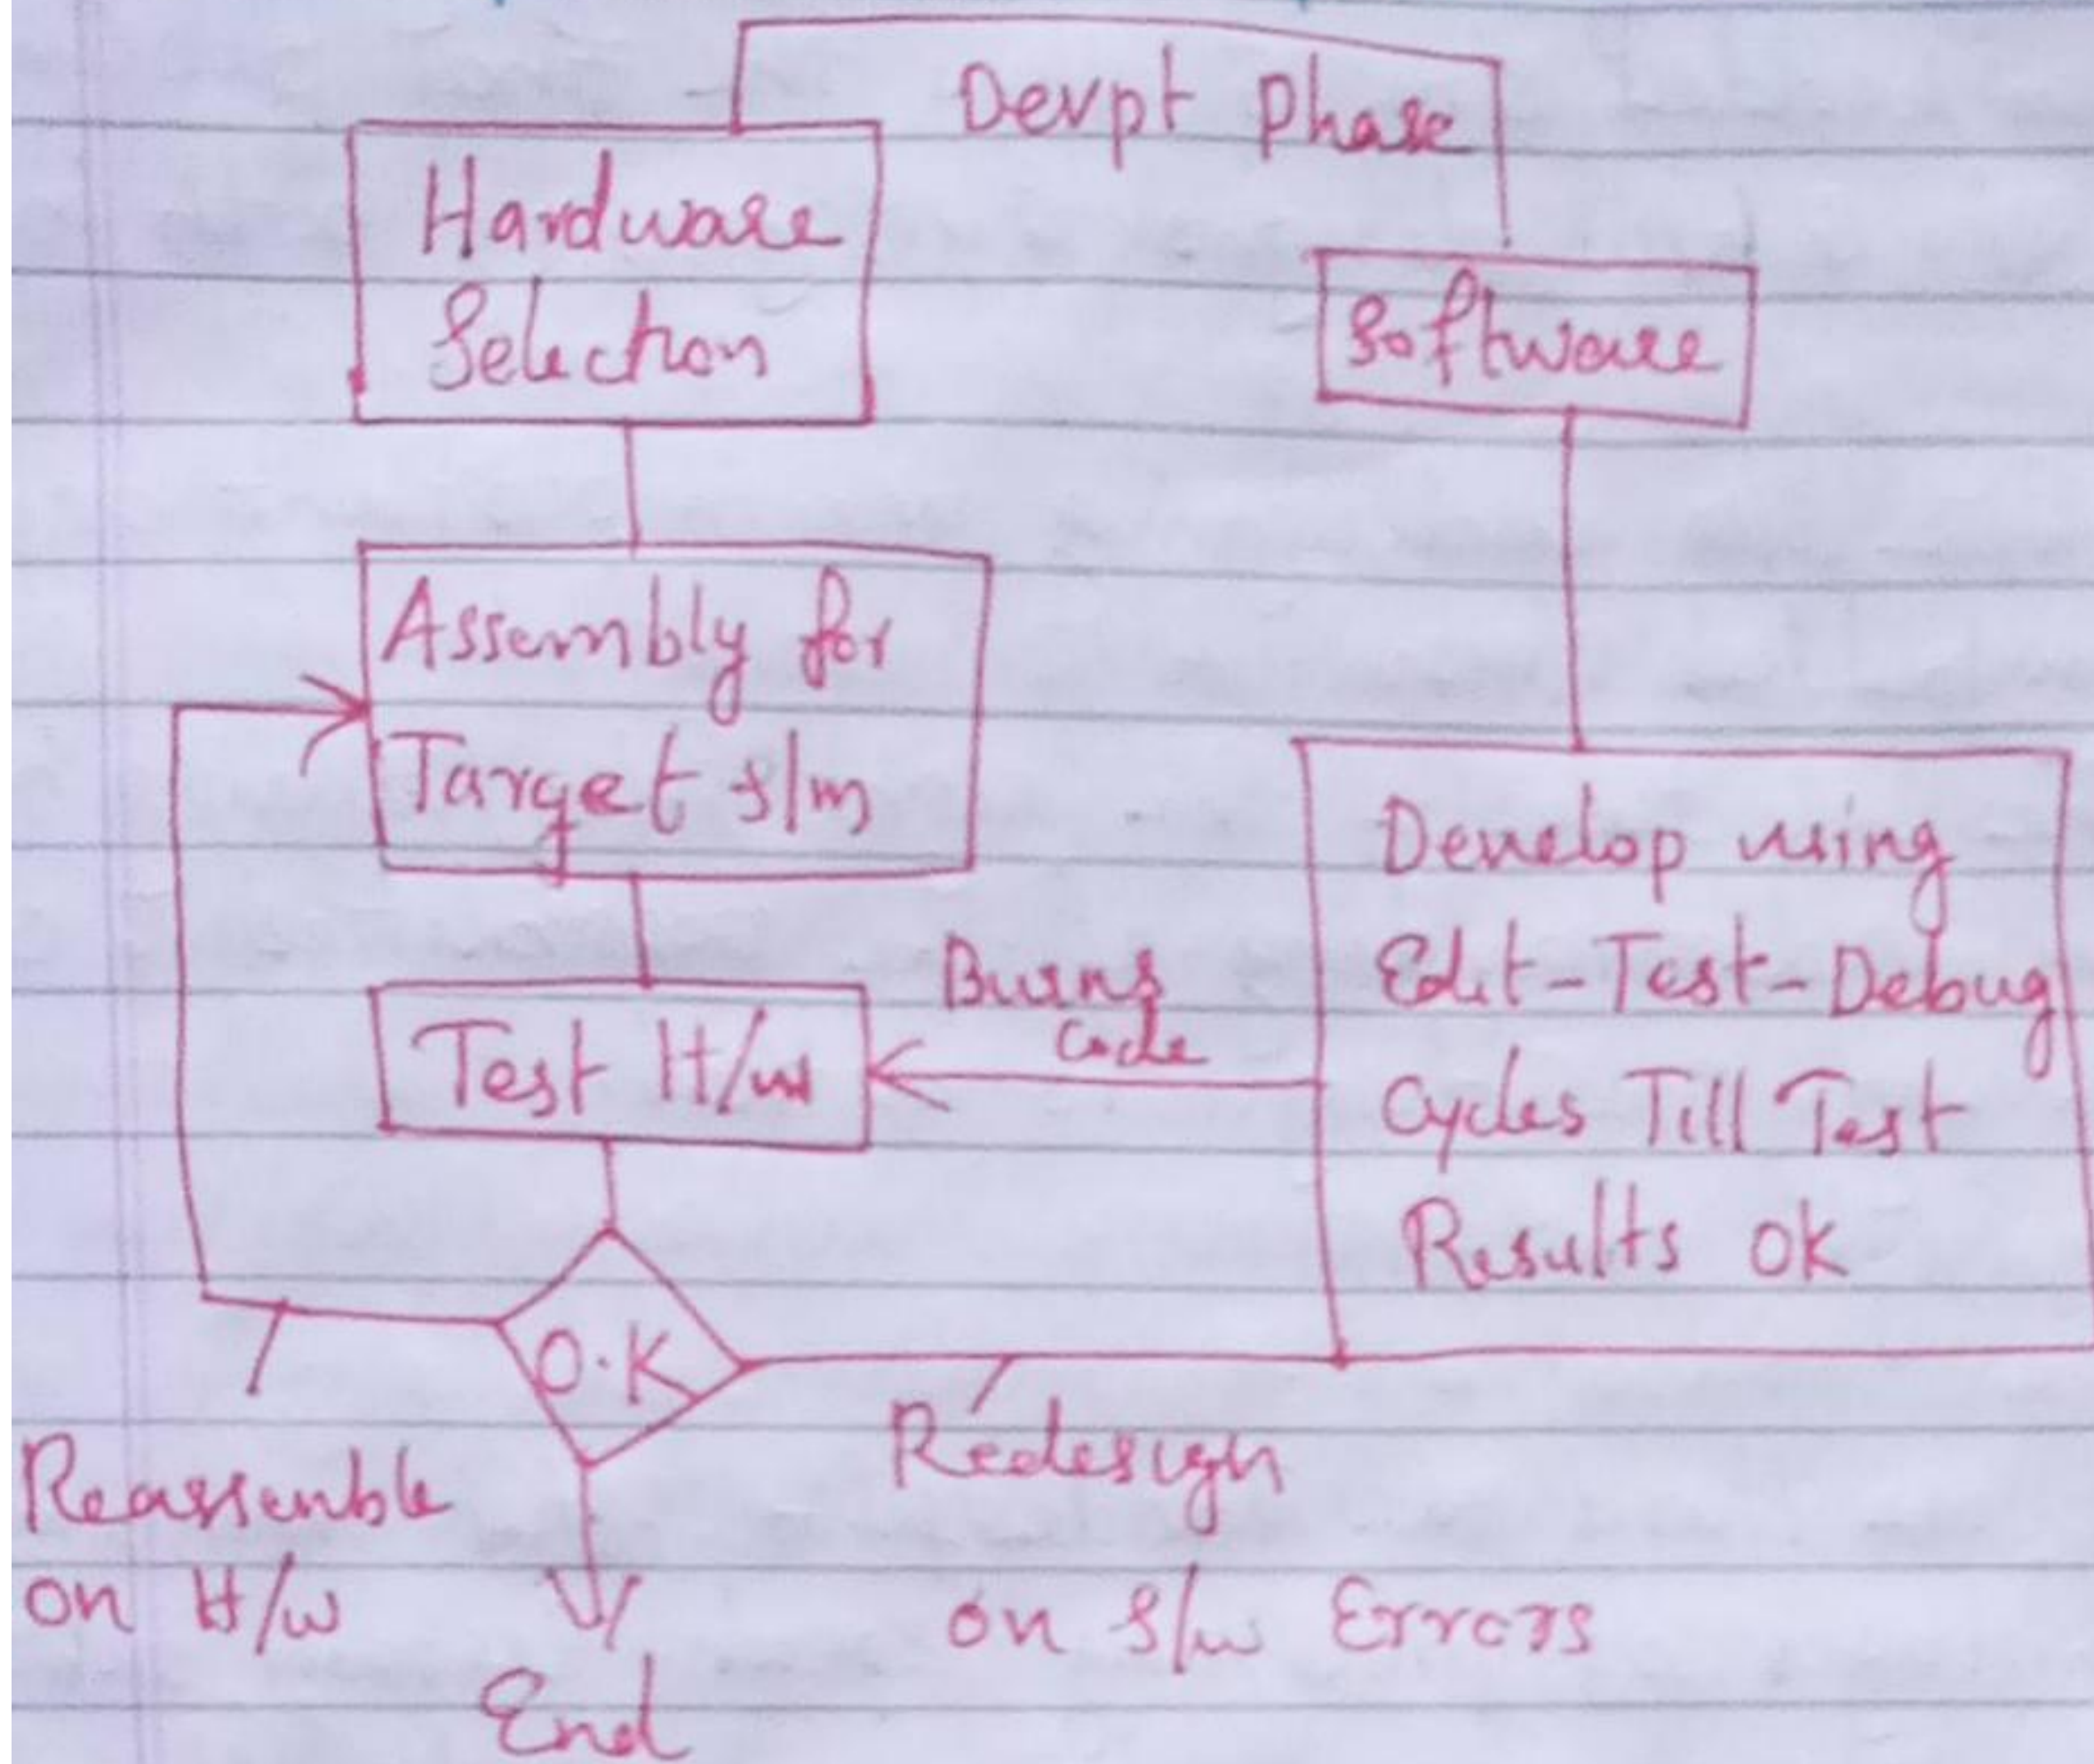 Devpt Phase
Hardware
Selection
Software
Assembly for
Target s/m
Develop using
Edit-Test-Debug
Cycles Till Test
Results OK
Burns
Code
Test H/w
O.K
Reassemble
on H/w
Redesign
on S/w Errors
End